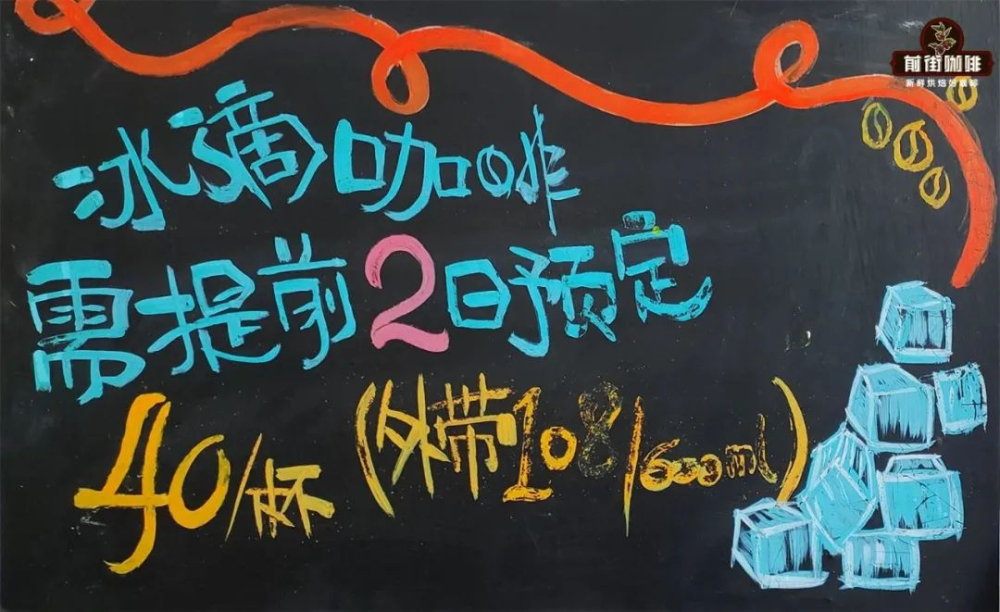 前街咖啡
新鲜烘焙的咖啡
冰滴咖啡
需提前2日预定
40/杯(外带108/600ml)